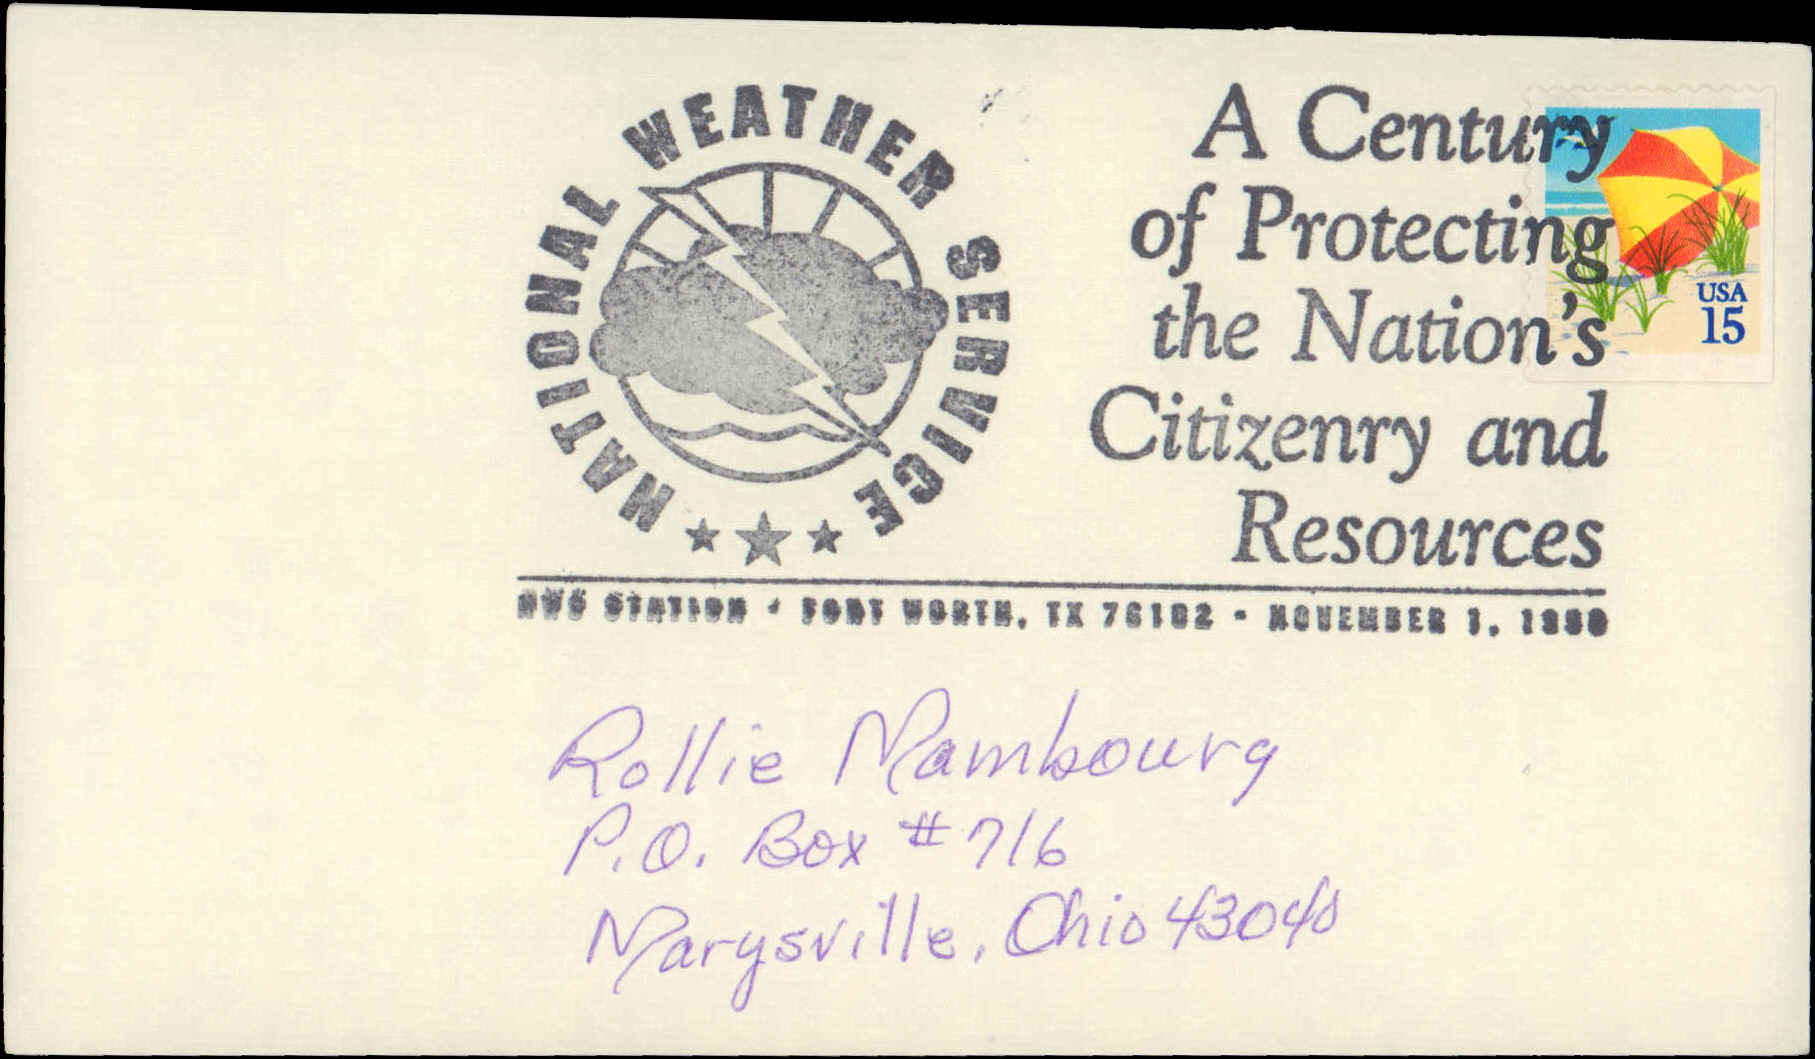 NATIONAL WEATHER SERVICE
A Century
of Protecting
the Nation's
Citizenry and
Resources
USA
15
NWS STATION • FORT WORTH, TX 76102 • NOVEMBER 1, 1990
Rollie Mambourg
P.O. Box #716
Marysville, Ohio 43040